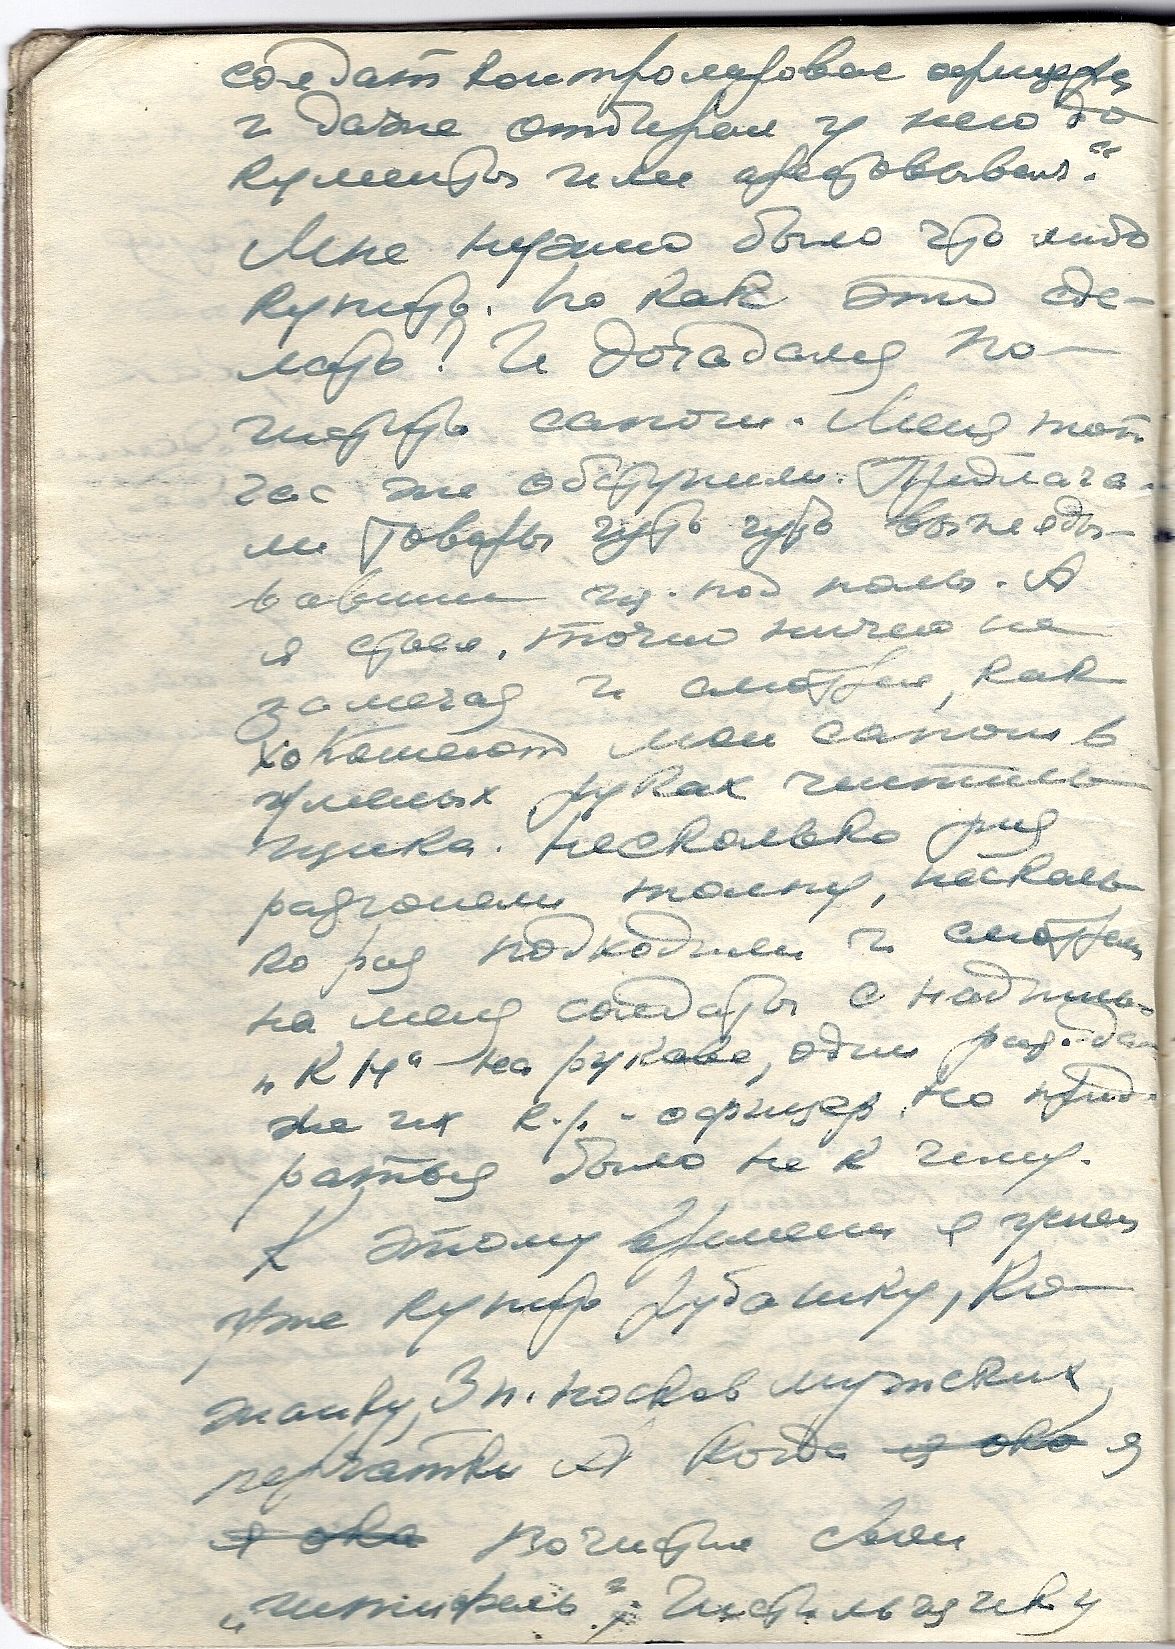 солдат контролировал офицера
и даже отбирал у него до
кументы или арестовывал?"
Мне нужно было что либо
купить. Но как это сде-
лать? И догадался по-
чистить сапоги. Меня тот
час же обступили. Предлага-
ли товары чуть чуть выгляды-
вавшие из-под полы. А
я стоял, точно ничего не
замечая и смотрел, как
хохочут мои сапоги в
умелых руках чистиль-
щика. Несколько раз
разгоняли толпу, несколь-
ко раз подходили и смотрели
на меня солдаты с надписью
"КН" на рукаве, один раз да
же их к.р.-офицер. Но прид-
раться было не к чему.
К этому времени я успел
уже купить рубашку, ко-
жанку, 3 п. носков мужских,
перчатки. А когда я око я
я око почистил свои
"штифель", чистильщику